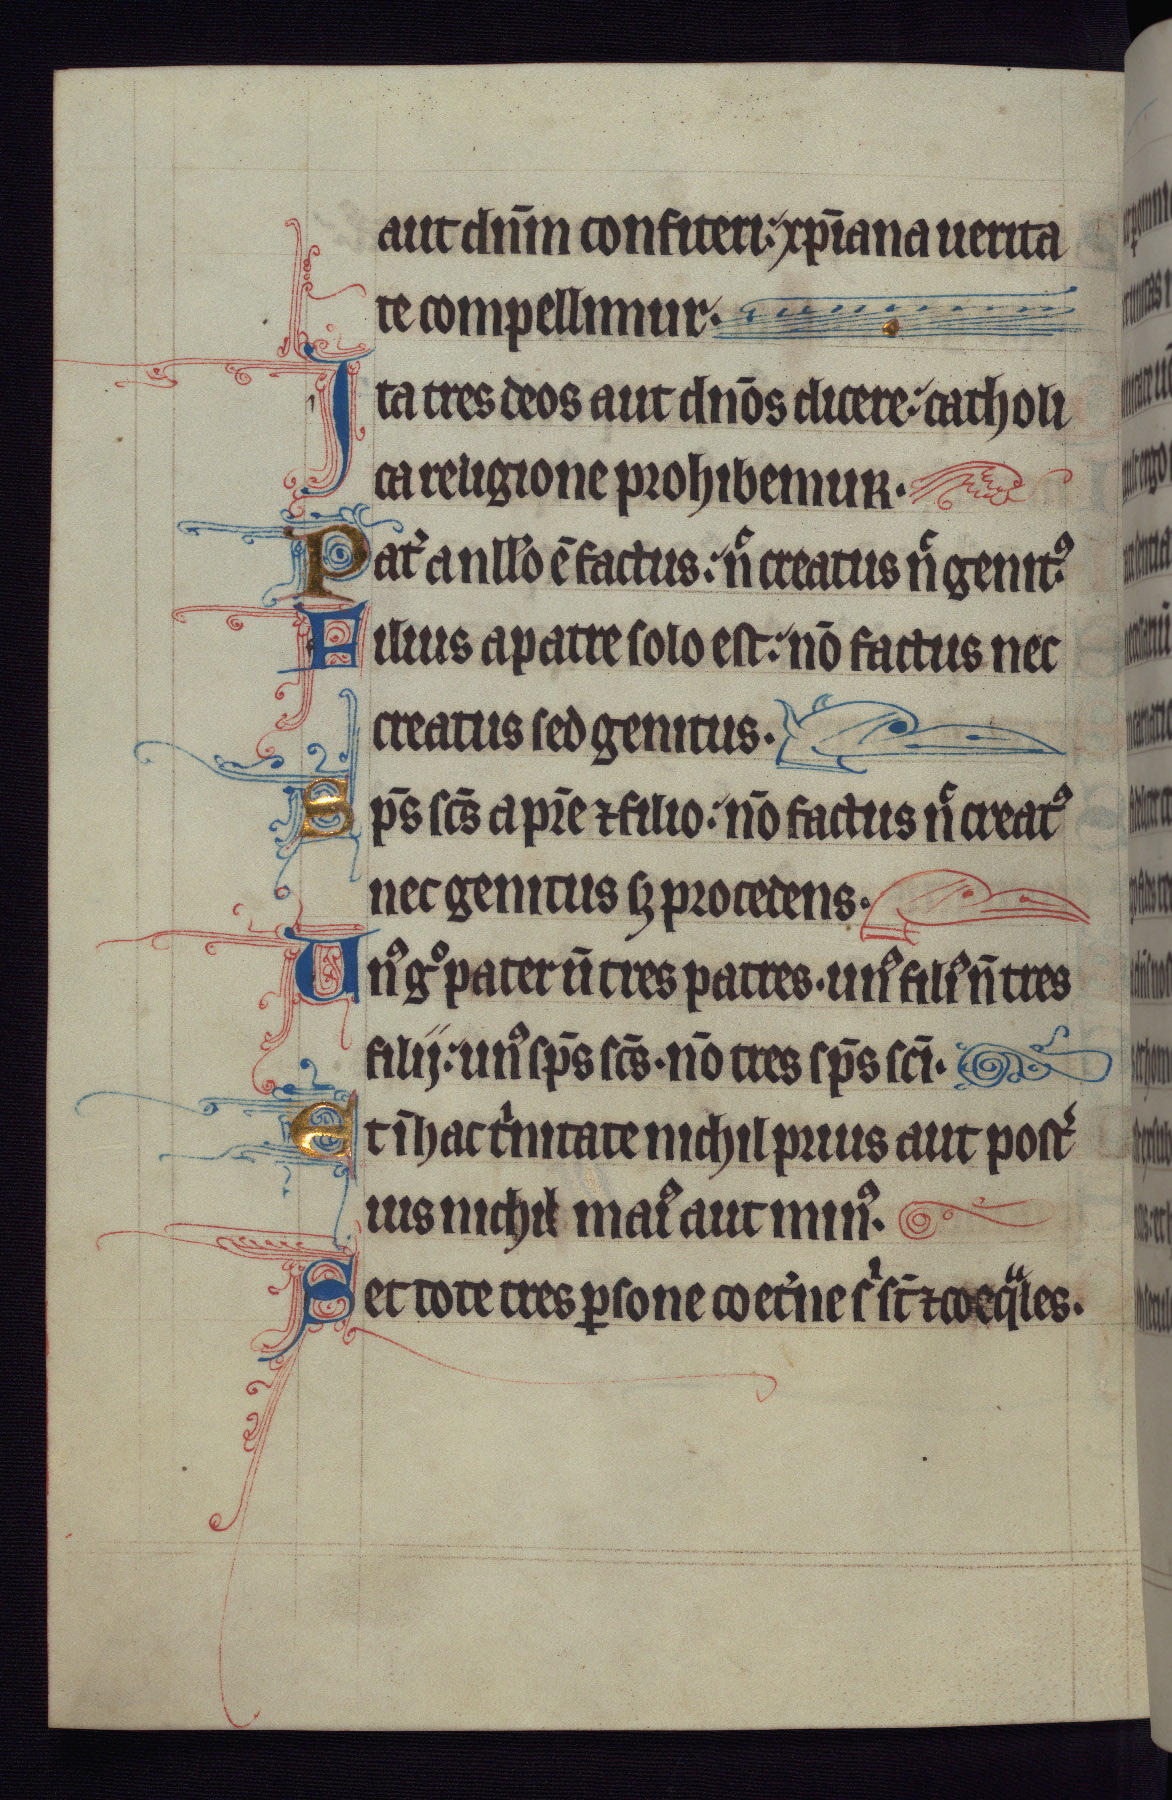 aut dn̄m confiteri: xp̄iana uerita
te compellimur.
Ita tres deos aut dn̄os dicere: catholi
ca religione prohibemur.
Pat̾ a nllo ē factus: n̄c creatus n̄c genit⁹
Filius a patre solo est: nō factus nec
creatus sed genitus.
Sp̄s sc̄s a pr̄e ⁊ filio: nō factus n̄c creat⁹
nec genitus sꝫ procedens.
Un⁹ gͦ pater n̄ tres patres. un⁹ fili⁹ n̄ tres
filij: un⁹ sp̄s sc̄s. nō tres sp̄s sc̄i.
Et ī hac tͥnitate nichil prius aut post̾
ius nichil mai⁹ aut min⁹.
Set tote tres ꝑsone coet̾ne sͥ st̄ ⁊ coeqͣles.